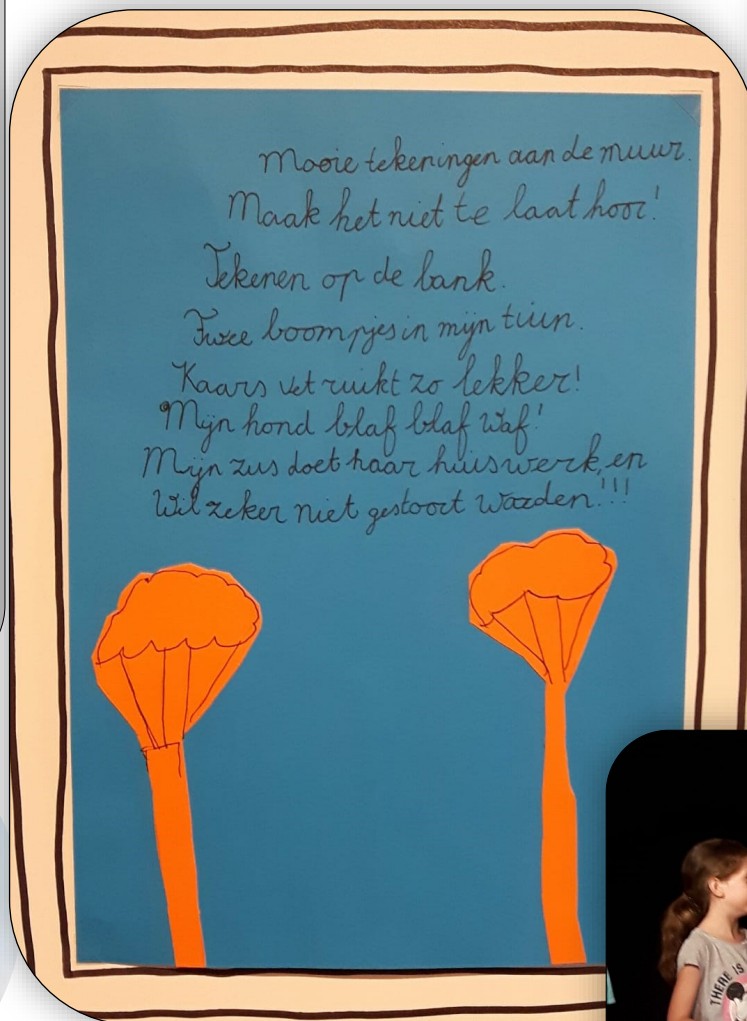 Mooie tekeningen aan de muur.
Maak het niet te laat hoor!
Tekenen op de bank.
Twee boompjes in mijn tuin.
Kaars vet ruikt zo lekker!
Mijn hond blaf blaf waf!
Mijn zus doet haar huiswerk, en
Wil zeker niet gestoort worden!!!
THERE IS